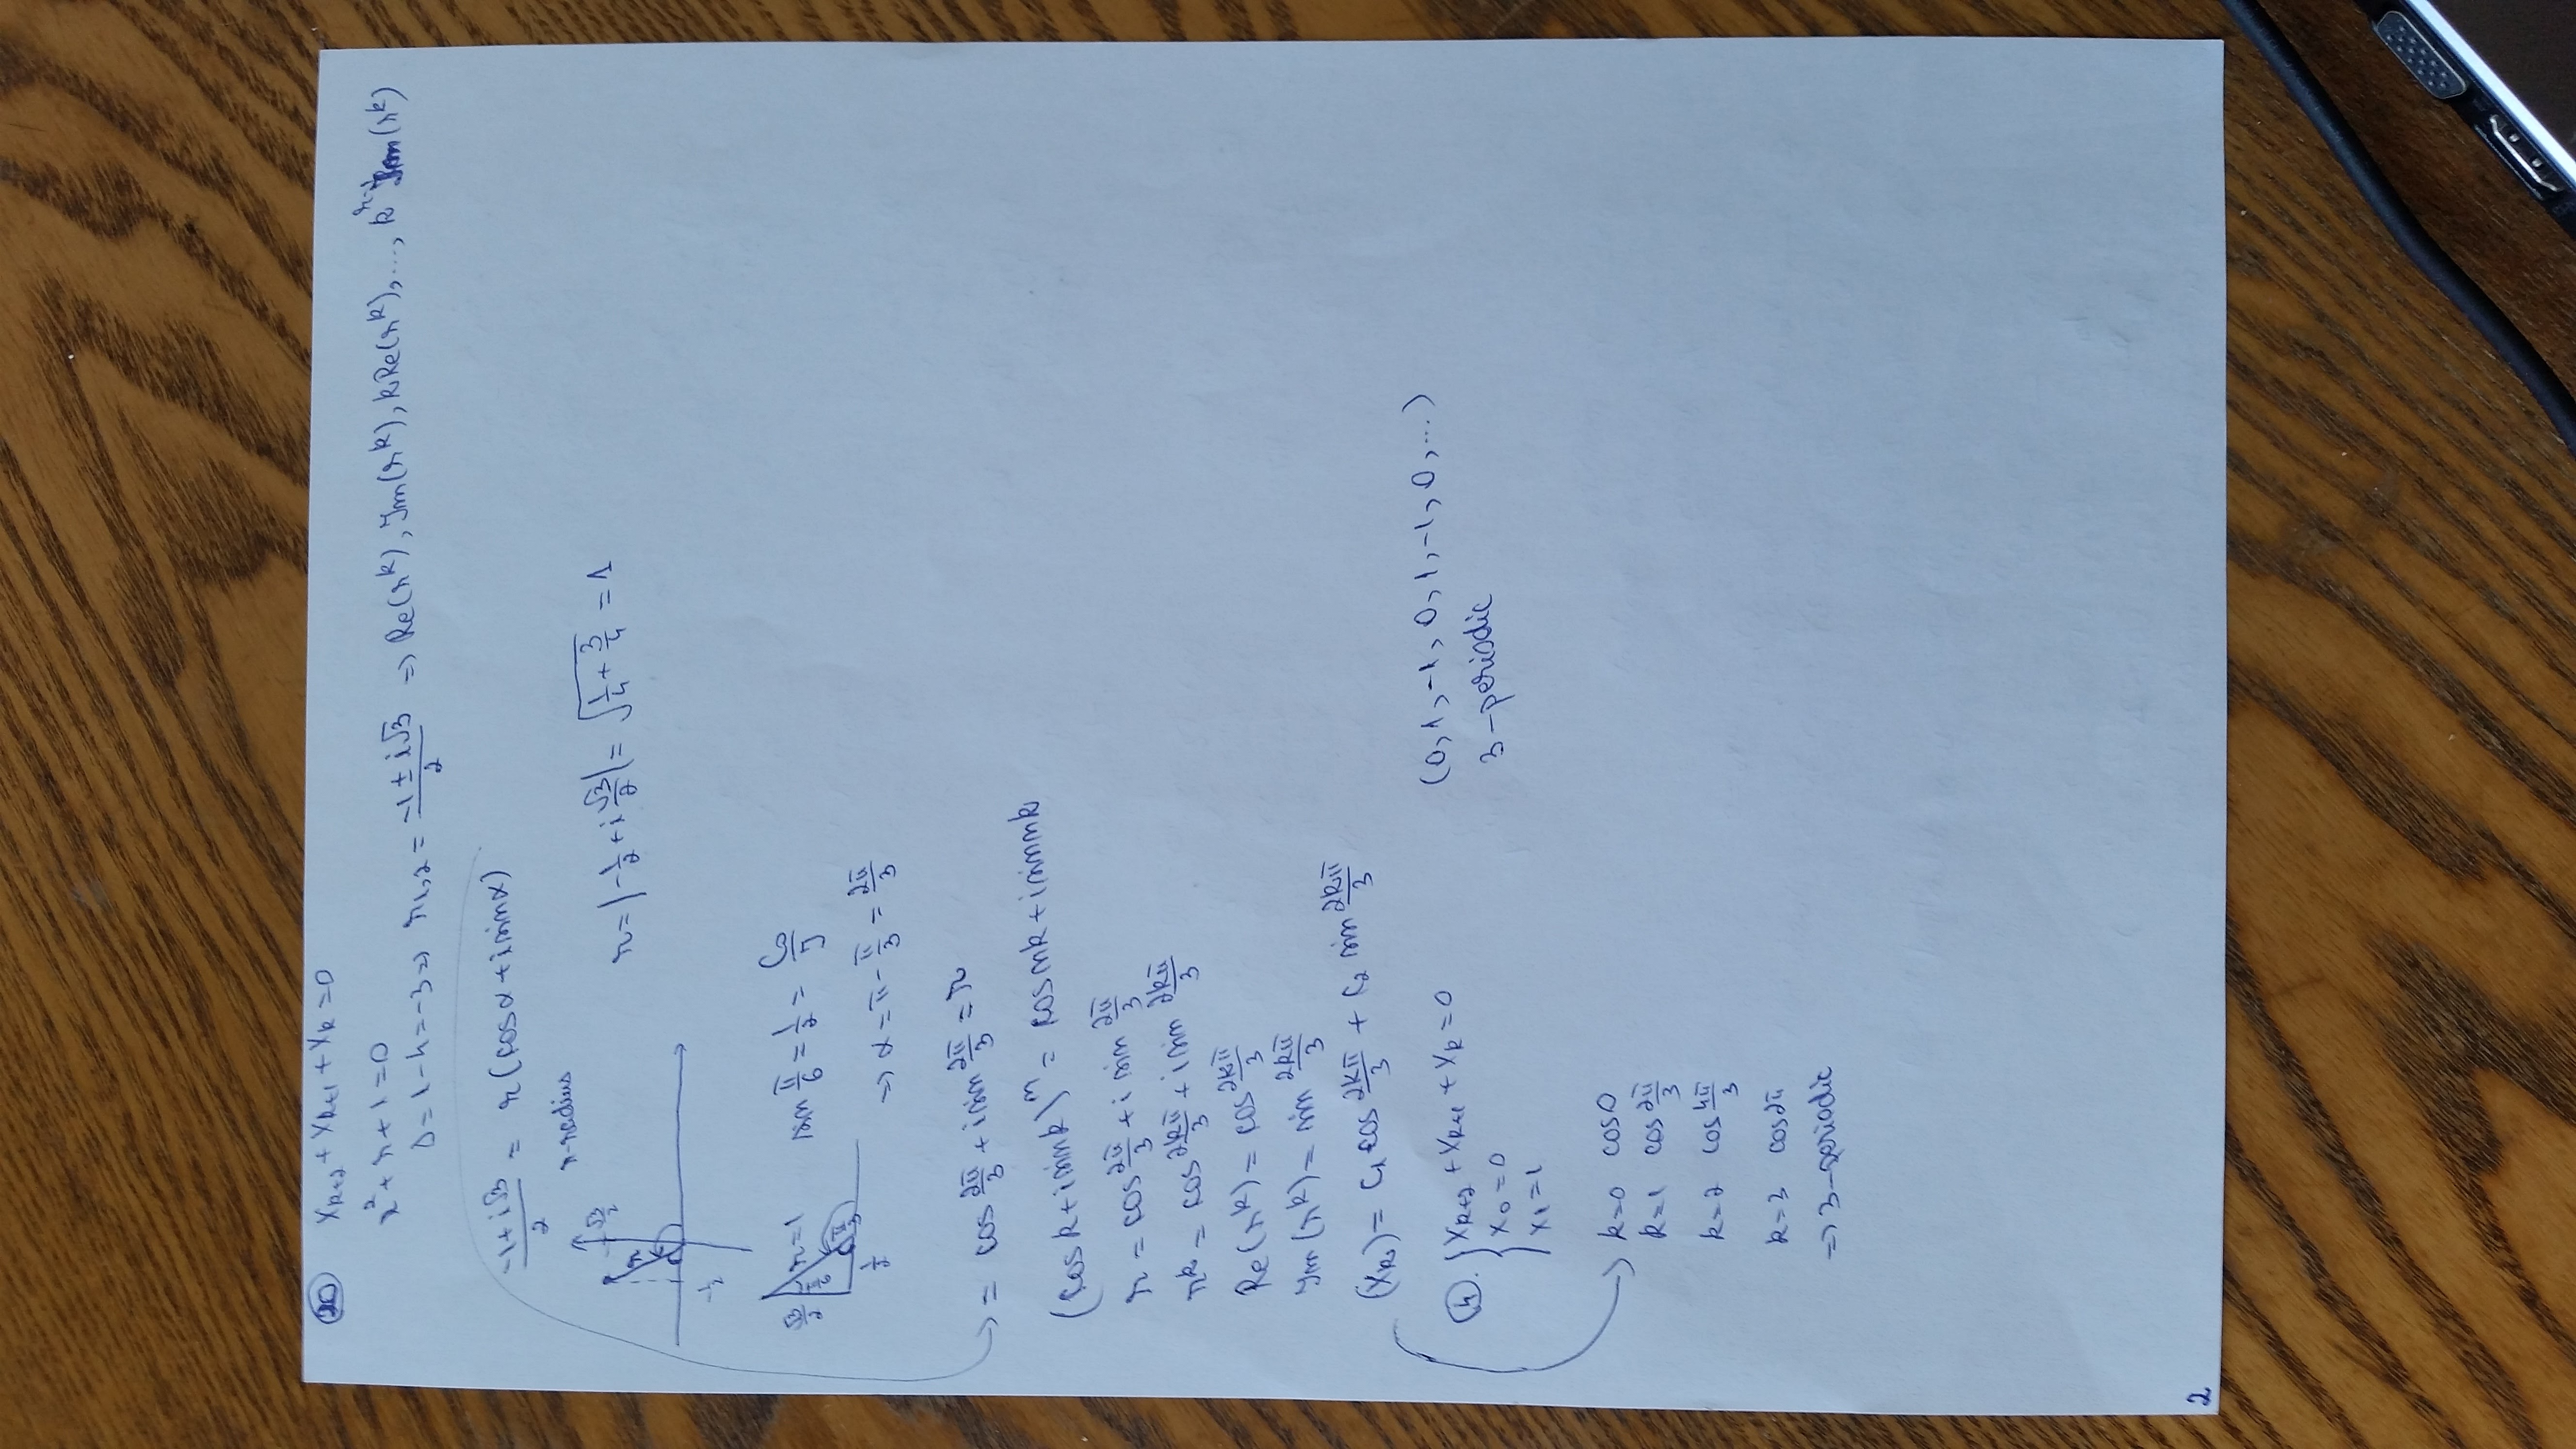 20 x_{k+2} + x_{k+1} + x_k = 0
r² + r + 1 = 0
Δ = 1 - 4 = -3 => r_{1,2} = \frac{-1 ± i√3}{2} => Re(r^k), Im(r^k), k Re(r^k), ..., k^{r-1} Im(r^k)
\frac{-1 + i√3}{2} = r (cos α + i sin α)
r - radius
√3/2
r
α
-1/2
r = |-1/2 + i √3/2| = √(1/4 + 3/4) = 1
√3/2
π/6
r = 1
π/3
α
1/2
sin π/6 = 1/2 =
=> α = π - π/3 = 2π/3
= cos 2π/3 + i sin 2π/3 = r
(cos k + i sin k)^n = cos nk + i sin nk
r = cos 2π/3 + i sin 2π/3
r^k = cos 2kπ/3 + i sin 2kπ/3
Re(r^k) = cos 2kπ/3
Im(r^k) = sin 2kπ/3
(x_k) = c_1 cos 2kπ/3 + c_2 sin 2kπ/3
4. { x_{k+2} + x_{k+1} + x_k = 0
x_0 = 0
x_1 = 1
(0, 1, -1, 0, 1, -1, 0, ...)
3-periodic
k=0 cos 0
k=1 cos 2π/3
k=2 cos 4π/3
k=3 cos 2π
=> 3-periodic
2